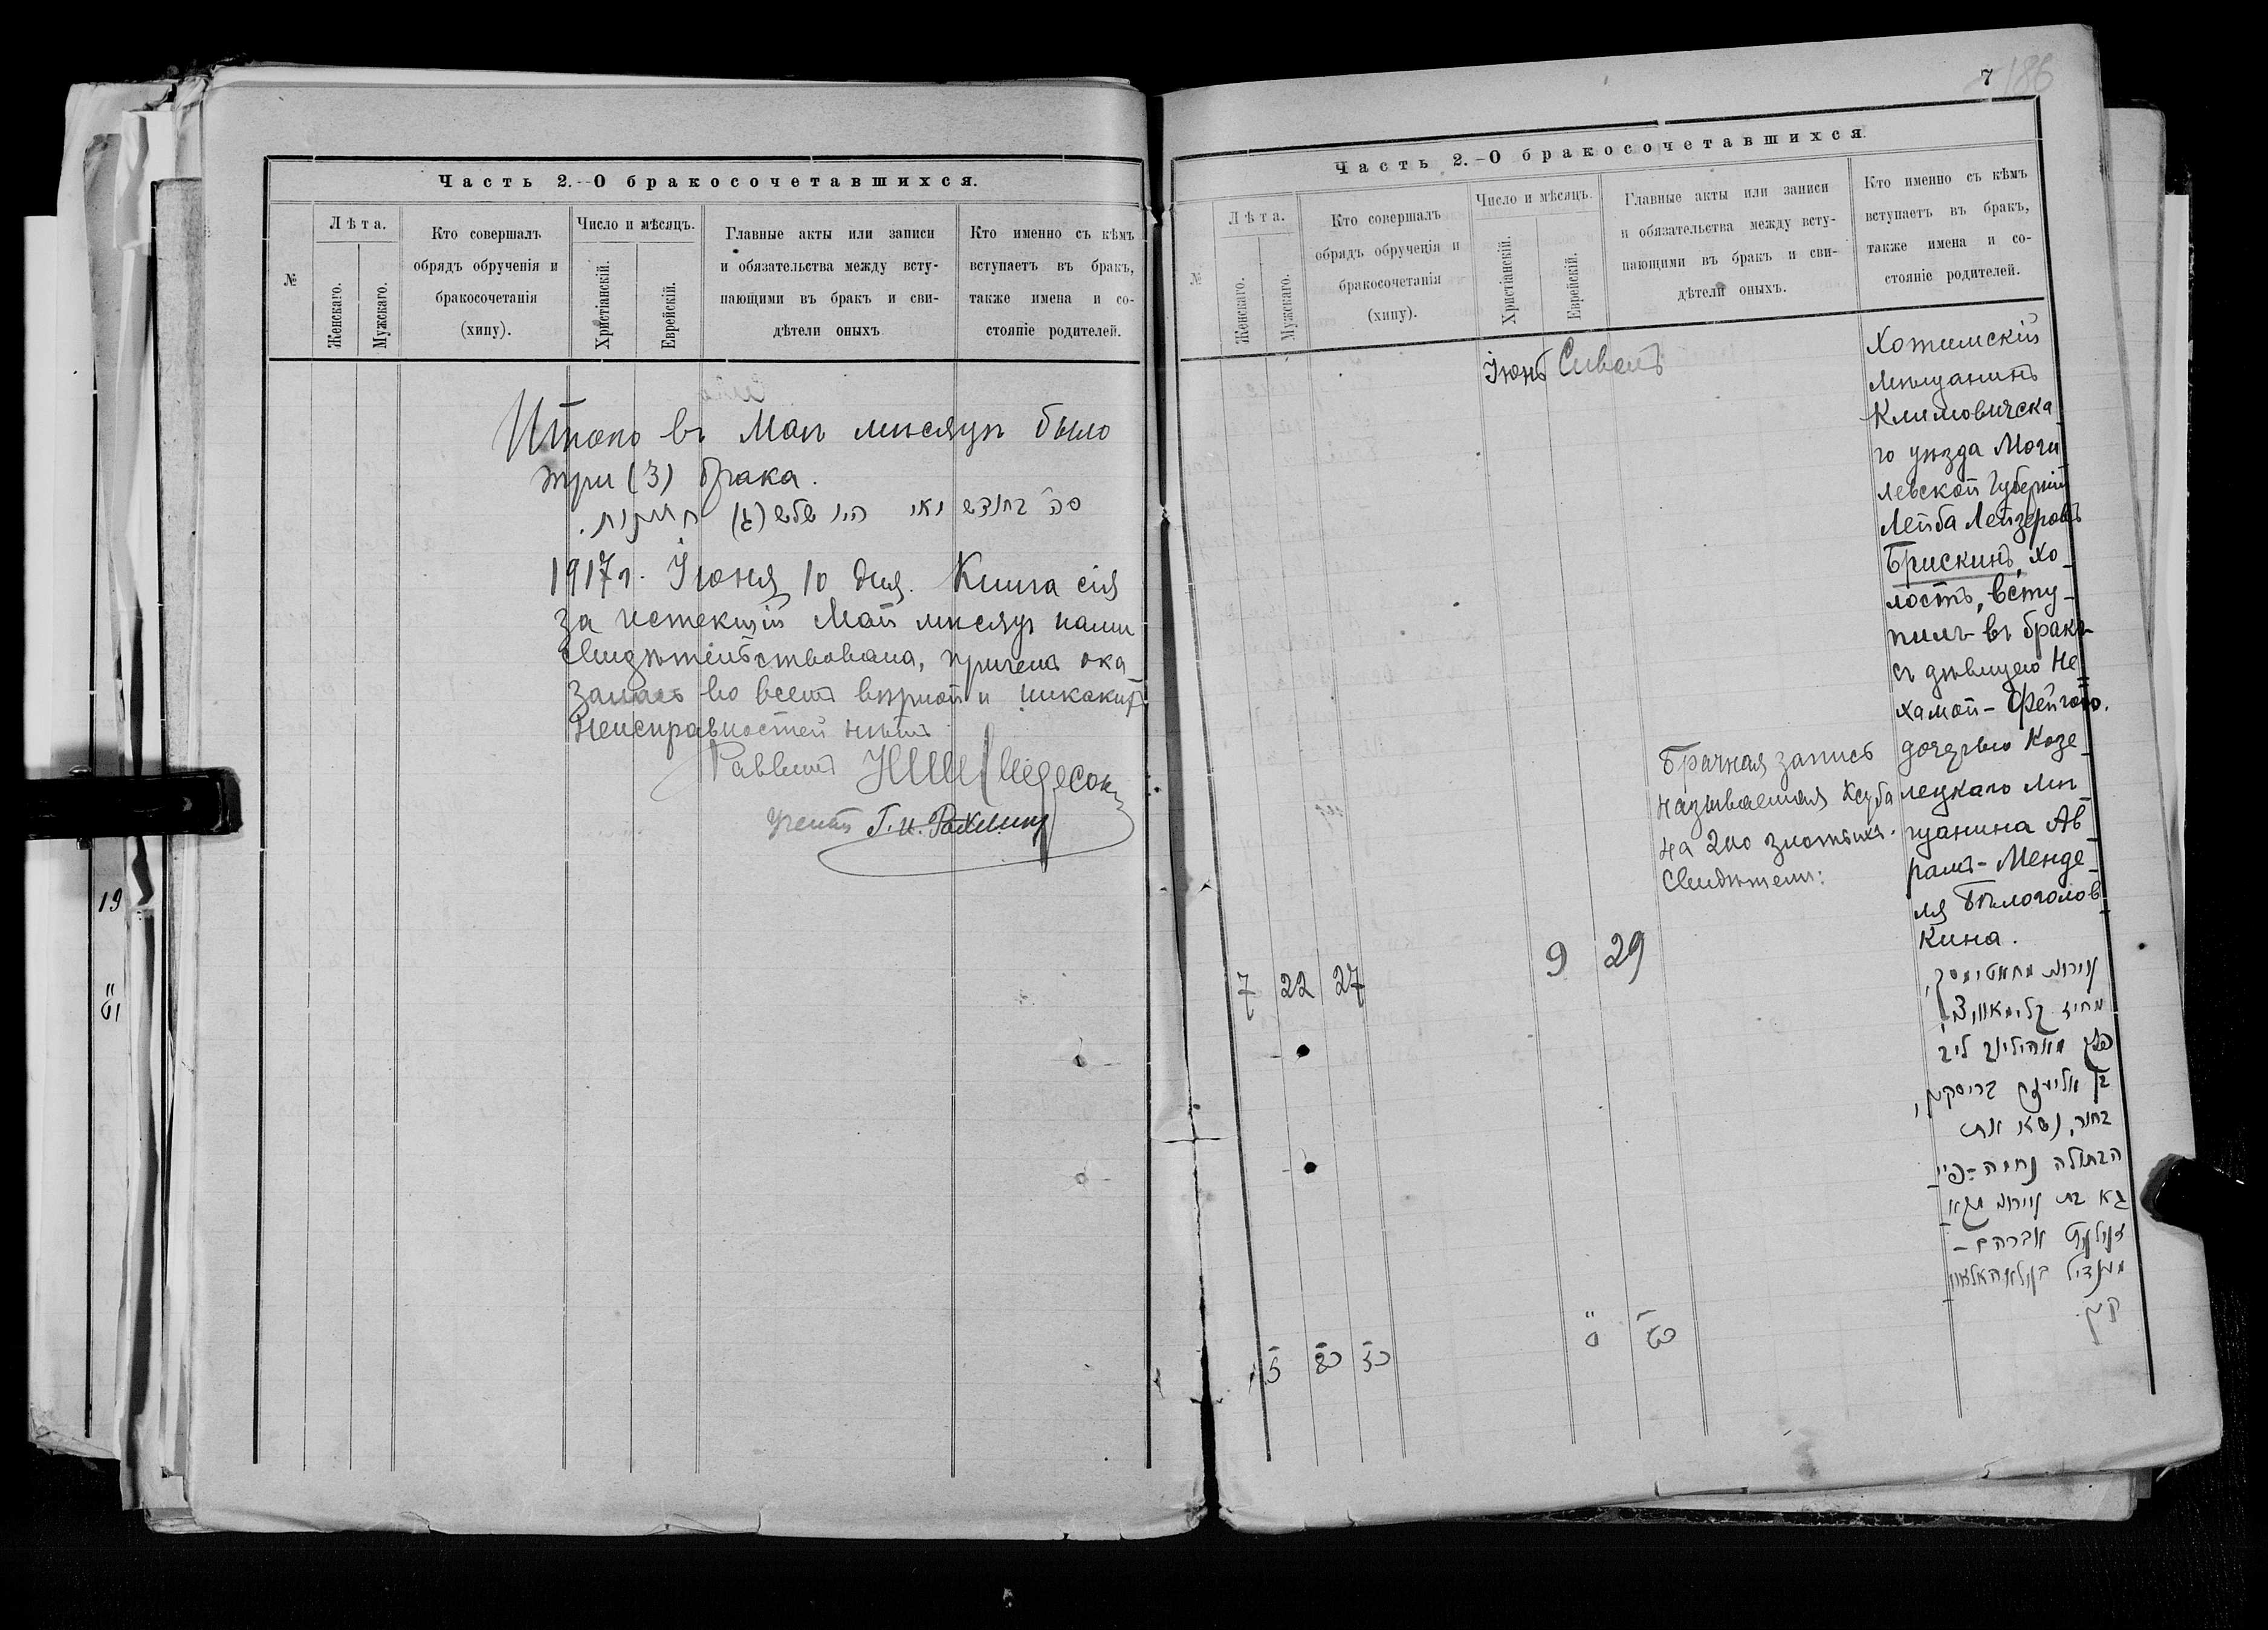 19
יט
Часть 2.--О бракосочетавшихся.
№
Лѣта.
Женскаго.
Мужскаго.
Кто совершалъ
обрядъ обрученія и
бракосочетанія
(хипу).
Число и мѣсяцъ.
Христіанскій.
Еврейскій.
Главные акты или записи
и обязательства между всту-
пающими въ бракъ и сви-
дѣтели оныхъ.
Кто именно съ кѣмъ
вступаетъ въ бракъ,
также имена и со-
стояніе родителей.
Итого въ Маѣ мѣсяцѣ было
три (3) брака.
סה״ בחודש מאי היו שלש (ג)
1917 г. Іюня 10 дня. Книга сія
за истекшій Май мѣсяцъ нами
свидѣтельствована, причемъ ока
залась во всемъ вѣрной и никакихъ
неисправностей нѣтъ
Раввинъ
Ученый Г. И. Рахлинъ
7
186
Часть 2.-О бракосочетавшихся.
№
Лѣта.
Женскаго.
Мужскаго.
Кто совершалъ
обрядъ обрученія и
бракосочетанія
(хипу).
Число и мѣсяцъ.
Христіанскій.
Еврейскій.
Главные акты или записи
и обязательства между всту-
пающими въ бракъ и сви-
дѣтели оныхъ.
Кто именно съ кѣмъ
вступаетъ въ бракъ,
также имена и со-
стояніе родителей.
Іюнь Сиванъ
7 22 27
9 29
Брачная запись
называемая Ксуба
на 200 злотыхъ.
Свидѣтели:
Хотимскій
мѣщанинъ
Климовическа
го уѣзда Моги
левской Губерніи
Лейба Лейзеровъ
Брискинъ, хо_
лостъ, всту_
пилъ въ бракъ
съ дѣвицею Не
хамой-Фейгою.
дочерью Козе_
лецкаго мѣ_
щанина Ав_
рамъ-Менде_
ля Бѣлоголов_
кина.
מחאטימסק,
מחוז קלימאוויץ,
פלך מאהילוב ליב
בן אליעזר בריסקין,
בחור, נשא את
הבתולה נחמה-פיי
גא בת
אברהם-
מענדיל
קין.
ז כב כז
ט כט